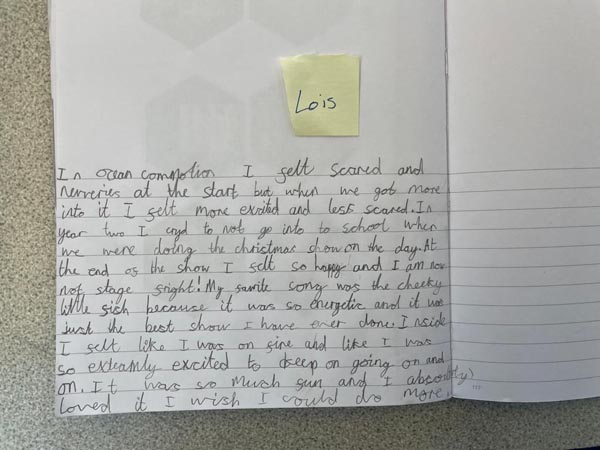 Lois
In ocean commotion I felt scared and
nerveries at the start but when we got more
into it I felt more excited and less scared. In
year two I cryd to not go into to school when
we were doing the christmas show on the day. At
the end of the show I felt so happy and I am now
not stage fright! My favrite song was the cheeky
little fish because it was so energetic and it was
just the best show I have ever done. Inside
I felt like I was on fire and like I was
so exteamly excited to keep on going on and
on. It was so much fun and I absoloutly
loved it I wish I could do more.